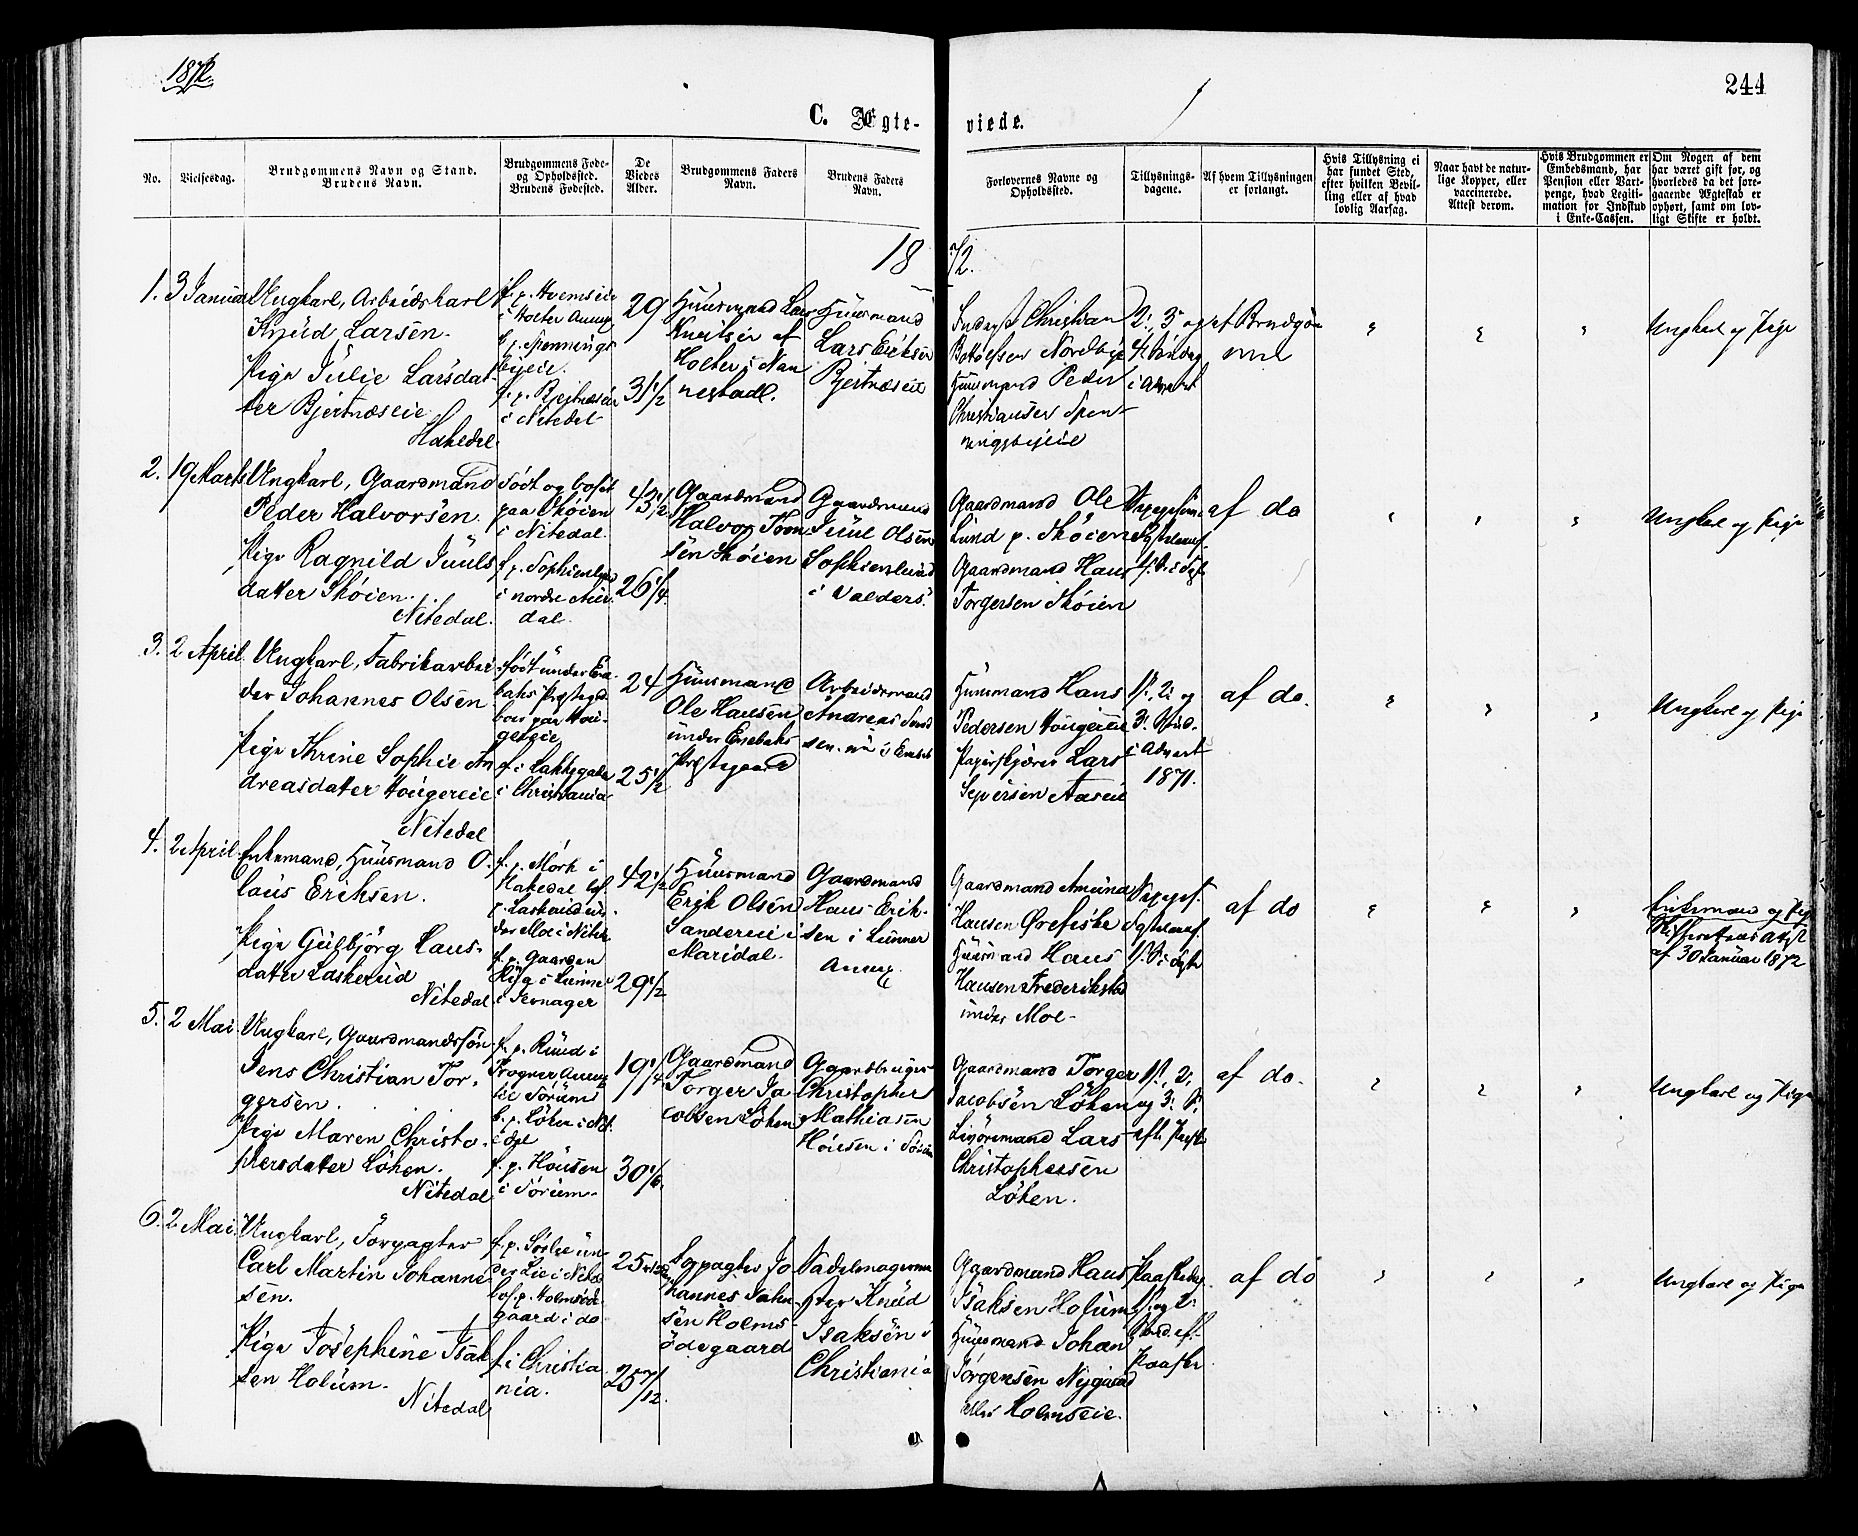 1872.
244
C. Ægte-
viede.
No.
Vielsesdag.
Brudgommens Navn og Stand.
Brudens Navn.
Brudgommens Føde-
og Opholdssted.
Brudens Fødested.
De
Viedes
Alder.
Brudgommens Faders
Navn.
Brudens Faders
Navn.
Forlovernes Navne og
Opholdssted.
Tillysnings-
dagene.
Af hvem Tillysningen
er forlangt.
Hvis Tillysning ei
har fundet Sted,
efter hvilken Bevil-
ling eller af hvad
lovlig Aarsag.
Naar havt de natur-
lige Kopper, eller
vaccinerede.
Attest derom.
Hvis Brudgommen er
Embedsmand, har
Pension eller Vart-
penge, hvad Legiti-
mation for Indskud
i Enke-Cassen.
Om Nogen af dem
har været gift før, og
hvorledes da det fore-
gaaende Ægteskab er
ophørt, samt om lov-
ligt Skifte er holdt.
18 72.
1. 3 Januar
Ungkarl, Arbeidskarl
Knud Larsen.
Pige Julie Larsdat-
ter Bjertnæseie
Hakedal.
i Holter Annex
f. p. Bjertnæseie
i Nitedal
29
31 1/2
Huusmand Lars
Knutsen af
Holter i Nan
nestad.
Huusmand
Lars Eriksen
Bjertnæseie
Christian
Nordby
Huusmand Peder
Christiansen Spen-
ningsbyeie
2., 3. og
4. Søndag
i Advent
af Brudgom
men
Ungkarl og Pige
2. 19 Marts
Ungkarl, Gaardmand
Peder Halvorsen.
Pige Ragnild Juuls
datter Skøien.
Nitedal.
Født og bosat
paa Skøien
i Nitedal.
f. p. Sophienlund
i nordre
dal.
43 1/2
26 1/4.
Gaardmand
Halvor
sen Skøien
Gaardmand
Juul Olsen
Sophienlund
i Valders.
Gaardmand Ole
Lund p. Skøien
Gaardmand Hans
Torgersen Skøien
af do
Ungkarl og Pige
3. 2 April.
Ungkarl, Fabrikarbei
der Johannes Olsen
Pige Thrine Sophie An
dreasdatter Hougereie
Nitedal
født under Ene-
baks Præstegd
bor paa Hou-
gereie
f. i Lakkegata
i Christiania
24
25 1/2
Huusmand
Ole Hansen
under Enebaks
Præstegaard
Arbeidsmand
Andreas
sen
Huusmand Hans
Pedersen Hougereie
Lars
Aaseie
1., 2. og
3. Sønd.
i Advent
1871.
af do.
Ungkarl og Pige
4. 2 April.
Enkemand, Huusmand O-
laus Eriksen.
Pige Gulbjørg Hans-
datter Laskerud
Nitedal
f. p. Mørk i
Hakedal bos.
p. Laskerud un-
der Moe i Nitedal
f. p. Gaarden
i Lunner
i Jevnager
42 1/2
29 1/2
Huusmand
Erik Olsen
Sandereie i
Maridal.
Gaardmand
Hans Erik-
sen i Lunner
Annex.
Gaardmand Amund
Hansen Ørefiske
Huusmand Hans
Hansen Frederikstad
under Moe-
af do
Enkemand og Pige
Skifterettens Attest
af 30 Januar 1872
5. 2 Mai.
Ungkarl, Gaardmandssøn
Jens Christian Tor-
gersen.
Pige Maren Christo-
phersdatter Løken.
Nitedal
f. p. Ruud i
Frogner Annex
til Sørum
b. p. Løken i Nit.
edal
f. p. Housen
i Sørum.
19 1/4
30 1/6.
Gaardmand
Torger Ja
cobsen Løken
Gaardbruger
Christopher
Mathiasen
Housen i Sørum
Gaardmand Torger
Jacobsen Løken
Lars
Christophersen
Løken.
1., 2.
og 3. S.
eft. Paaske
af do.
Ungkarl og Pige
6. 2 Mai.
Ungkarl, Forpagter
Carl Martin Johanne
sen.
Pige Josephine Isak
sen Holum.
Nitedal
f. p. Sørlie un-
der Lie i Nitedal
bos. p. Holmsøde
gaard i do
f. i Christia
nia.
25
25 7/12.
Forpagter Jo
hannes
sen Holms-
ødegaard
Sadelmagermester
Knud
Isaksen i
Christiania
Gaardmand Hans
Isaksen Holum
Huusmand Johan
Jørgensen Nygaard
eller Holmseie.
Paaskedag
1. og 2.
Sønd. ef.
Paaske
af do
Ungkarl og Pige